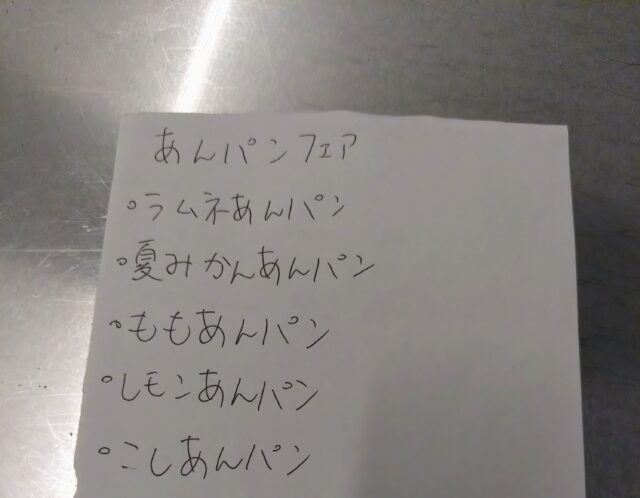 あんパンフェア
○ラムネあんパン
○夏みかんあんパン
○ももあんパン
○レモンあんパン
○こしあんパン